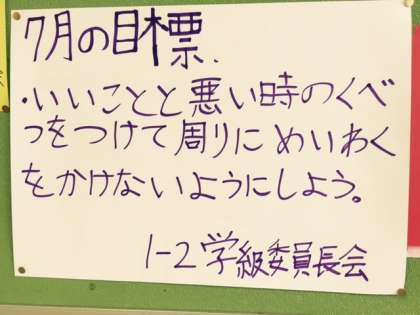 7月の目標.
・いいことと悪い時のくべ
つをつけて周りにめいわく
をかけないようにしよう。
1-2学級委員長会